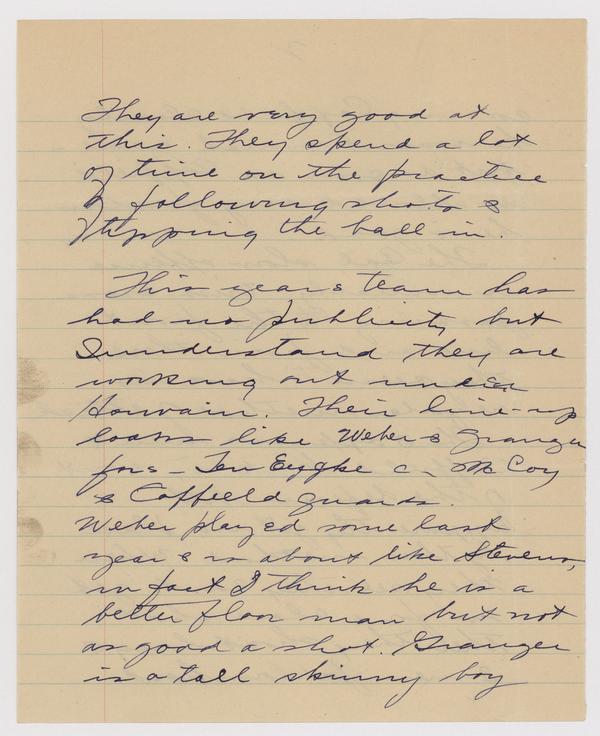 They are very good at
this. They spend a lot
of time on the practice
of following shots &
tipping the ball in.
This years team has
had no publicity but
I understand they are
working out under
Their line-up
looks like Weber & Granger
fors - Ten Eygke c - McCoy
& Coffield guards.
Weber played some last
year & is about like Stevens,
in fact I think he is a
better floor man but not
as good a shot. Granger
is a tall skinny boy